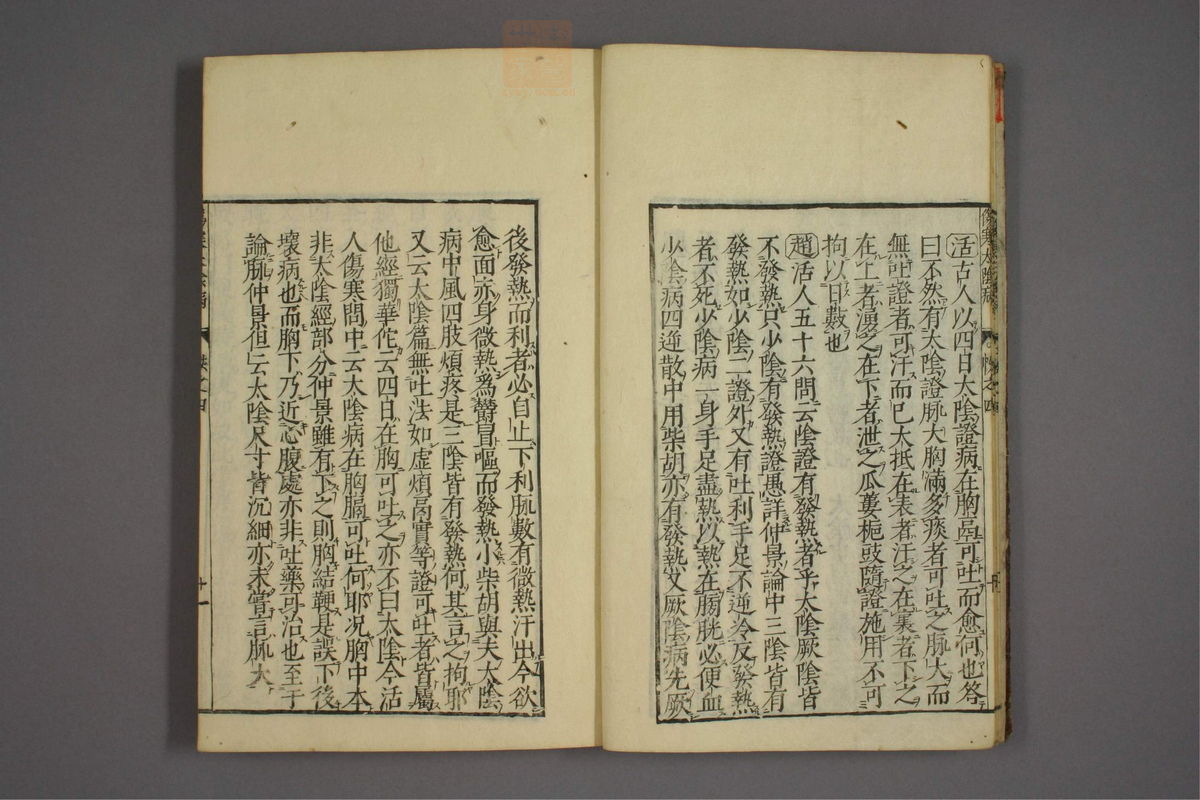 傷寒太陰病
卷之四
活古人以四日太陰證病在胸膈可吐而愈何也答
曰不然有太陰證脉大胸滿多痰者可吐之脉大而
無吐證者可汗而已大抵在表者汗之在裏者下之
在上者湧之在下者泄之瓜蔞梔豉隨證施用不可
拘以日數也
趙活人五十六問云陰證有發熱者乎太陰厥陰皆
不發熱只少陰有發熱證愚詳仲景論中三陰皆有
發熱如少陰二證外又有吐利手足不逆冷反發熱
者不死少陰病一身手足盡熱以熱在膀胱必便血
少陰病四逆散中用柴胡亦有發熱又厥陰病先厥
後發熱而利者必自止下利脉數有微熱汗出今欲
愈面亦身微熱爲欝冒嘔而發熱小柴胡與夫太陰
病中風四肢煩疼是三陰皆有發熱何其言之拘耶
又云太陰篇無吐法如虚煩膈實等證可吐者皆屬
他經獨華佗云四日在胸可吐之亦不曰太陰今活
人傷寒問中云太陰病在胸膈可吐何耶况胸中本
非太陰經部分仲景雖有下之則胸結鞕是誤下後
壞病也而胸下乃近心腹處亦非吐藥可治也至于
論脉仲景但云太陰尺寸皆沉細亦未嘗言脉大
十一